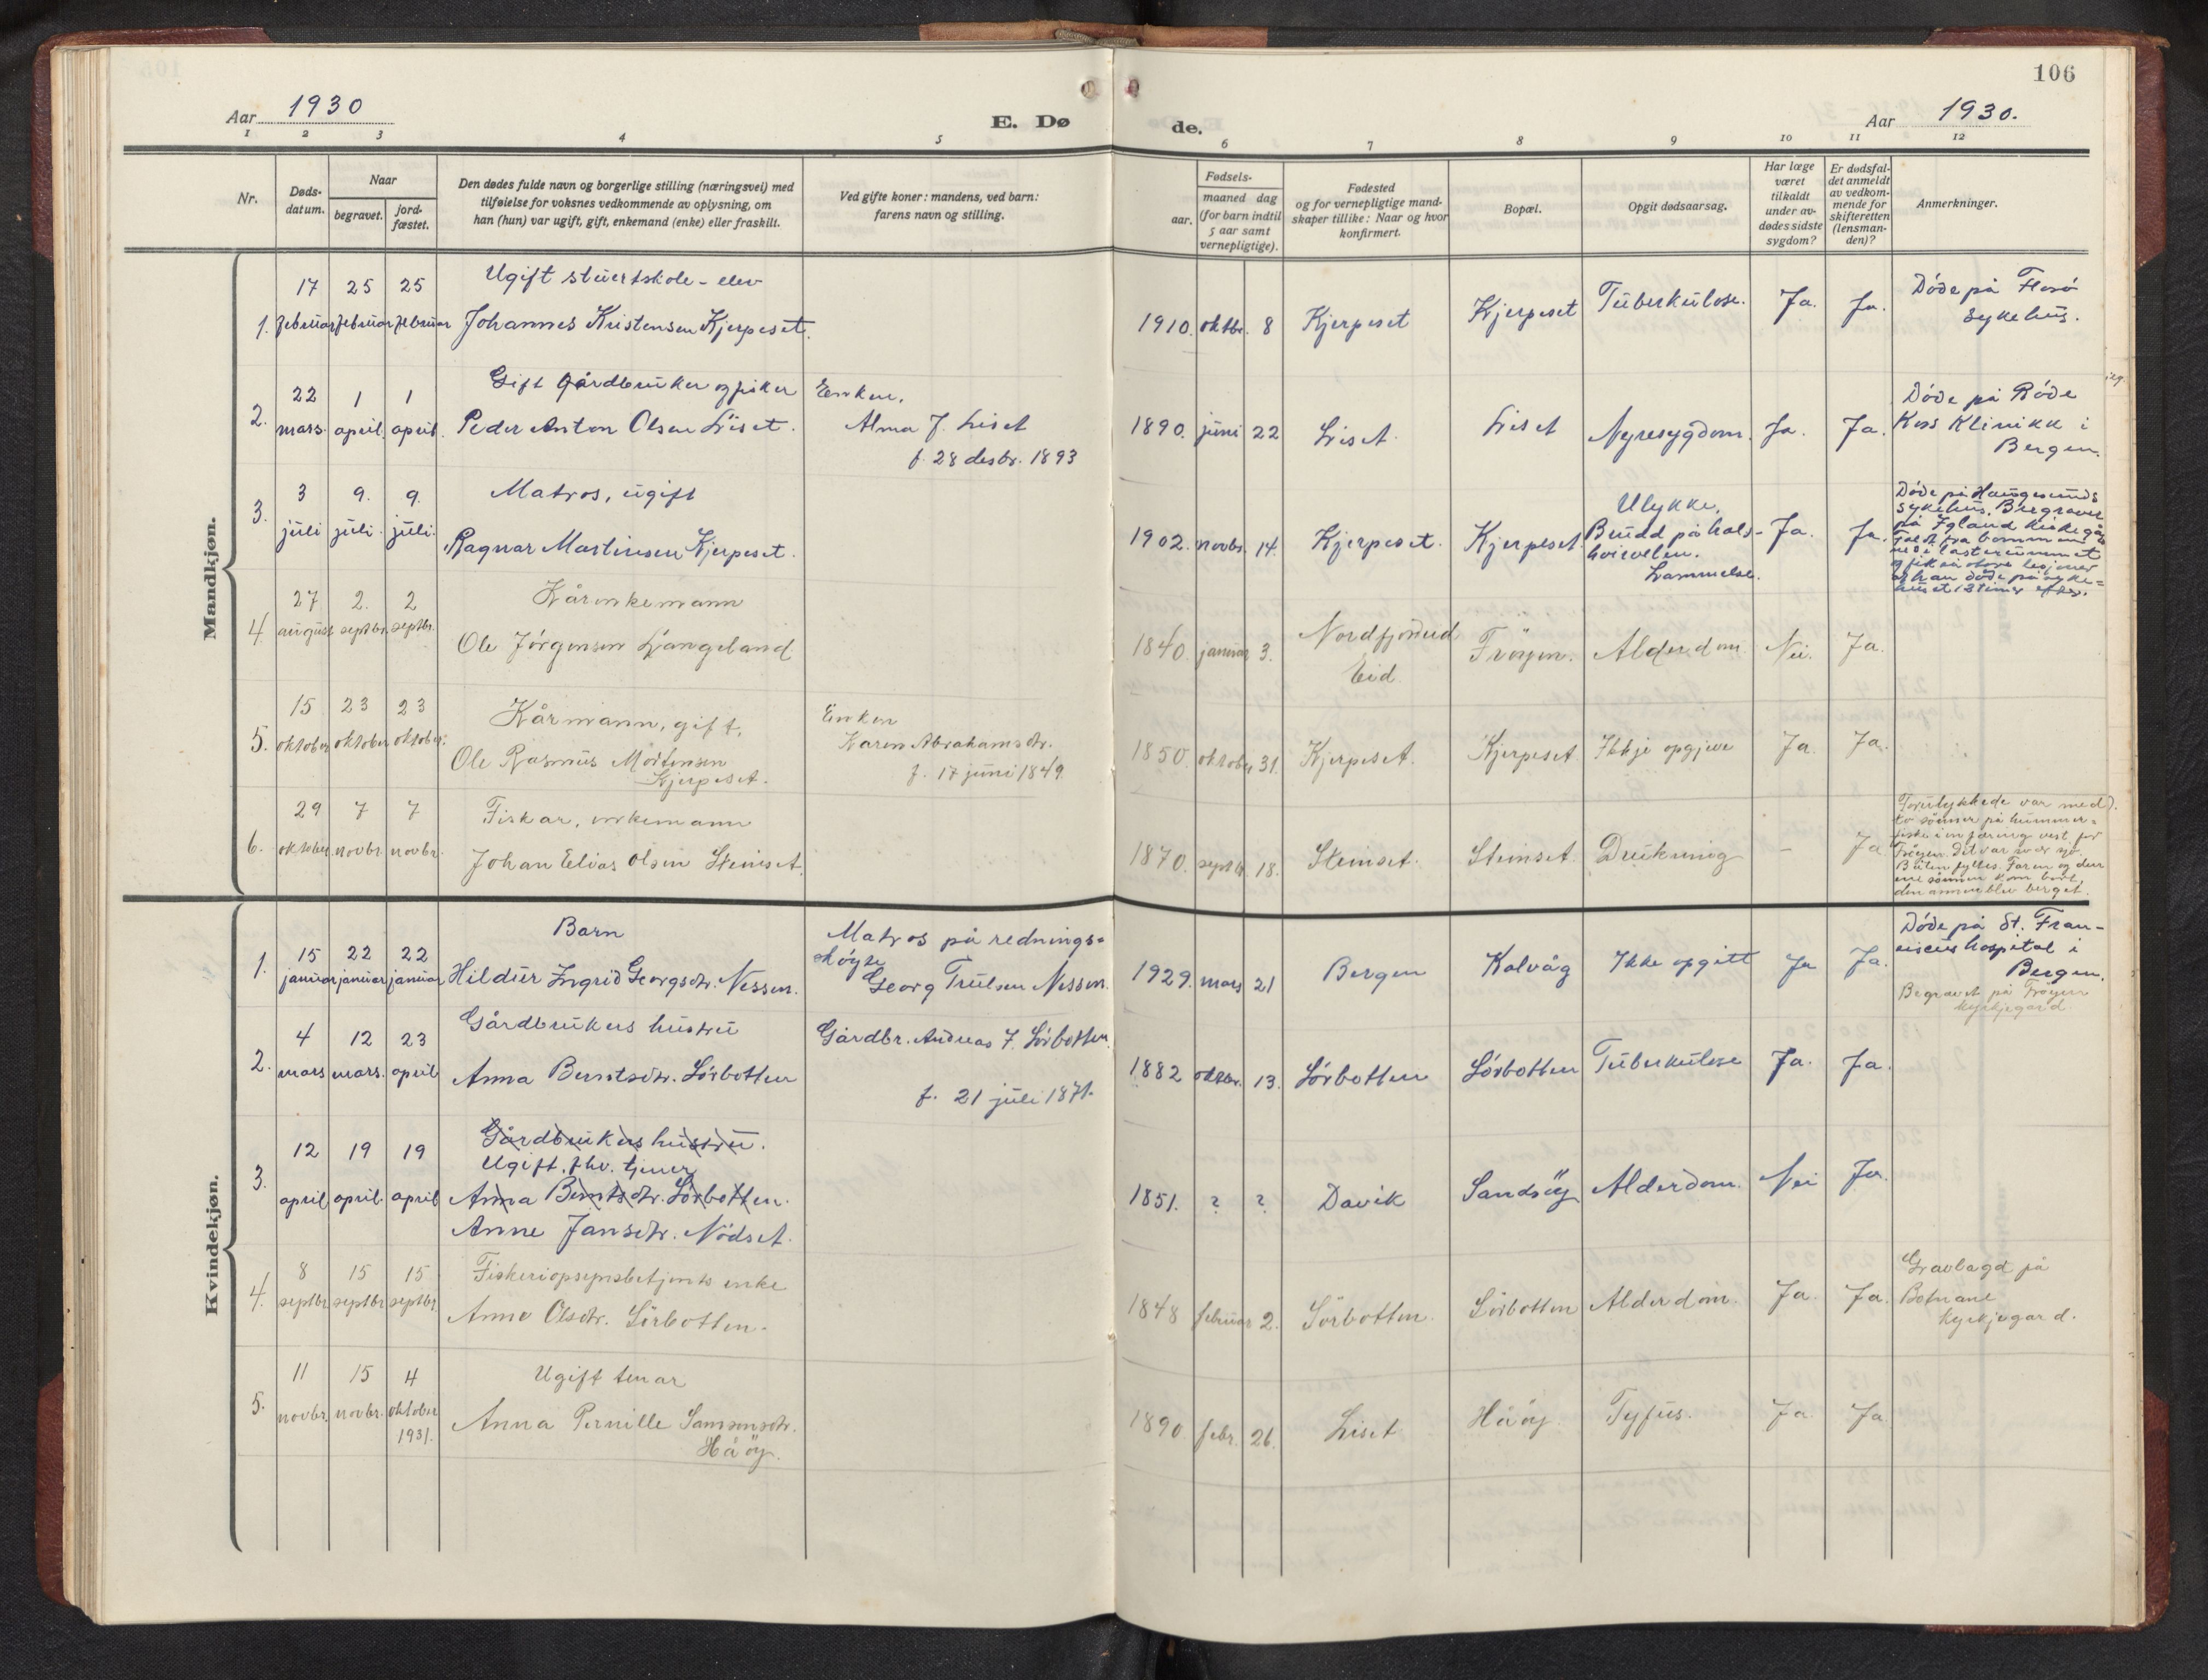 106
Aar 1930
E. Døde.
Aar 1930.
1 2 3 4 5 6 7 8 9 10 11 12
Nr.
Døds-
datum.
Naar
begravet.
jord-
fæstet.
Den dødes fulde navn og borgerlige stilling (næringsvei) med
tilføielse for voksnes vedkommende av oplysning, om
han (hun) var ugift, gift, enkemand (enke) eller fraskilt.
Ved gifte koner: mandens, ved barn:
farens navn og stilling.
Fødsels-
aar.
maaned dag
(for barn indtil
5 aar samt
vernepligtige).
Fødested
og for vernepligtige mand-
skaper tillike: Naar og hvor
konfirmert.
Bopæl.
Opgit dødsaarsag.
Har læge
været
tilkaldt
under av-
dødes sidste
sygdom?
Er dødsfal-
det anmeldt
av vedkom-
mende for
skifteretten
(lensman-
den)?
Anmerkninger.
Mandkjøn.
1.
17 februar
25 februar
25 februar
Ugift stuertskole-elev
Johannes Kristensen Kjerpeset.
1910. oktbr. 8
Kjerpeset
Kjerpeset
Tuberkulose.
Ja.
Ja.
Døde på Florø
sykehus.
2.
22 mars.
1 april.
1 april.
Gift gårdbruker og fisker
Peder Anton Olsen Liset.
Enken.
Alma J. Liset
f. 28 desbr. 1893
1890. juni 22
Liset.
Liset
Nyresygdom.
Ja.
Ja.
Døde på Røde
Kors Klinikk i
Bergen.
3.
3 juli
9. juli.
9. juli.
Matros, ugift
Ragnar Martinsen Kjerpeset.
1902. novbr. 14.
Kjerpeset.
Kjerpeset.
Ulykke.
Brudd på hals-
hvirvelen.
Lammelse.
Ja.
Ja.
Døde på Haugesunds
sykehus. Begravet
på Igland
ned i lasterummet
og fik så store lesjoner
at han døde på syke-
huset 12 timer efter.
4.
27 august
2. septbr.
2 septbr.
Kårenkemann
Ole Jørgensen Langeland
1840. januar 3.
Nordfjordeid
Eid.
Frøyen.
Alderdom.
Nei.
Ja.
5.
15 oktober
23 oktober
23 oktober.
Kårmann, gift.
Ole Rasmus Mortensen
Kjerpeset.
Enken
Karen Abrahamsdtr.
f. 17 juni 1849.
1850. oktober 31.
Kjerpeset.
Kjerpeset
Ikkje opgjeve
Ja.
Ja.
6.
29 oktober.
7 novbr.
7 novbr.
Fiskar, enkemann
Johan Elias Olsen Steinset.
1870. septbr. 18.
Steinset.
Steinset.
Drukning
-
Ja
Forulykkede var med
to sønner på hummer-
fiske i en færing vest for
Frøyen. Det var svær sjø.
Båten fyltes. Faren og den
ene sønnen kom bort,
den annen blev berget.
Kvindekjøn.
1.
15 januar
22 januar
22 januar
Barn
Hildur Ingrid Georgsdtr. Nessen.
Matros på rednings-
skøyte
Georg Trulsen Nessen.
1929. mars 21
Bergen
Kalvåg
Ikke opgitt
Ja
Ja.
Døde på St. Fran-
ciscus hospital i
Bergen.
Begravet på Frøyen
kyrkjegard.
2.
4 mars
12 mars.
23 april
Gårdbrukers hustru
Anna Berntsdtr. Sørbotten
Gårdbr. Andreas J. Sørbotten.
f. 21 juli 1871.
1882 oktbr. 13.
Sørbotten
Sørbotten
Tuberkulose
Ja.
Ja.
3.
12 april
19 april.
19 april
Gårdbrukers hustru.
Ugift. fhv. tjener
Anna Berntsdtr. Sørbotten.
Anne Jansdtr. Nødset.
1851. ? ?
Davik
Sandsøy
Alderdom.
Nei
Ja.
4.
8 septbr
15 septbr
15 septbr.
Fiskeriopsynsbetjents enke
Anne Olsdtr. Sørbotten.
1848 februar 2.
Sørbotten.
Sørbotten
Alderdom.
Ja.
Ja.
Gravlagd på
Botnane
kyrkjegard.
5.
11 novbr.
15 novbr.
4 oktober
1931.
Ugift tenar
Anna Pernille Samsonsdtr.
Håøy.
1890. febr. 26.
Liset
Håøy.
Tyfus.
Ja.
Ja